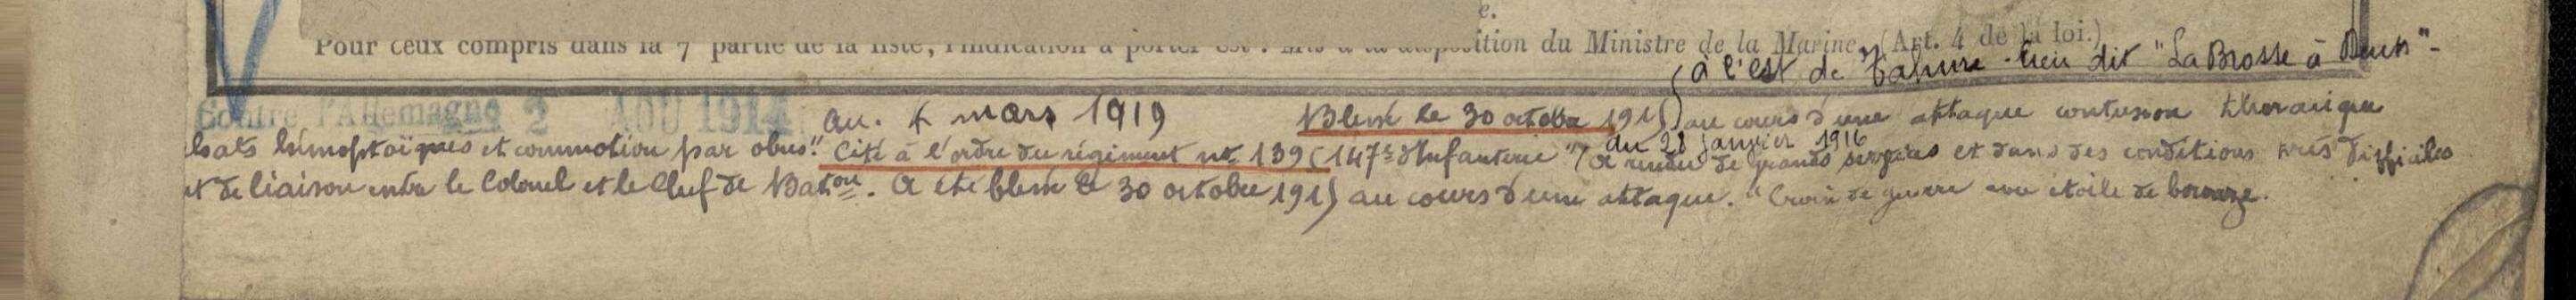 e.
Pour ceux compris dans la 7e partie de la liste, l'indication à porter est : Mis à la disposition du Ministre de la Marine. (Art. 4 de la loi.)
(à l'est de Tahure - lieu dit "La Brosse à Dents" -
Contre l'Allemagne 2 AOU 1914 au. 4 mars 1919 Blessé le 30 octobre 1915) au cours d'une attaque contusion thoracique
hémoptoïques et commotion par obus". Cité à l'ordre du régiment no 139 (147e d'Infanterie) du 28 janvier 1916 "A rendu de grands services et dans des conditions très difficiles
de liaison entre le Colonel et le Chef de Baton. A été blessé le 30 octobre 1915 au cours d'une attaque. "Croix de guerre avec étoile de bronze.